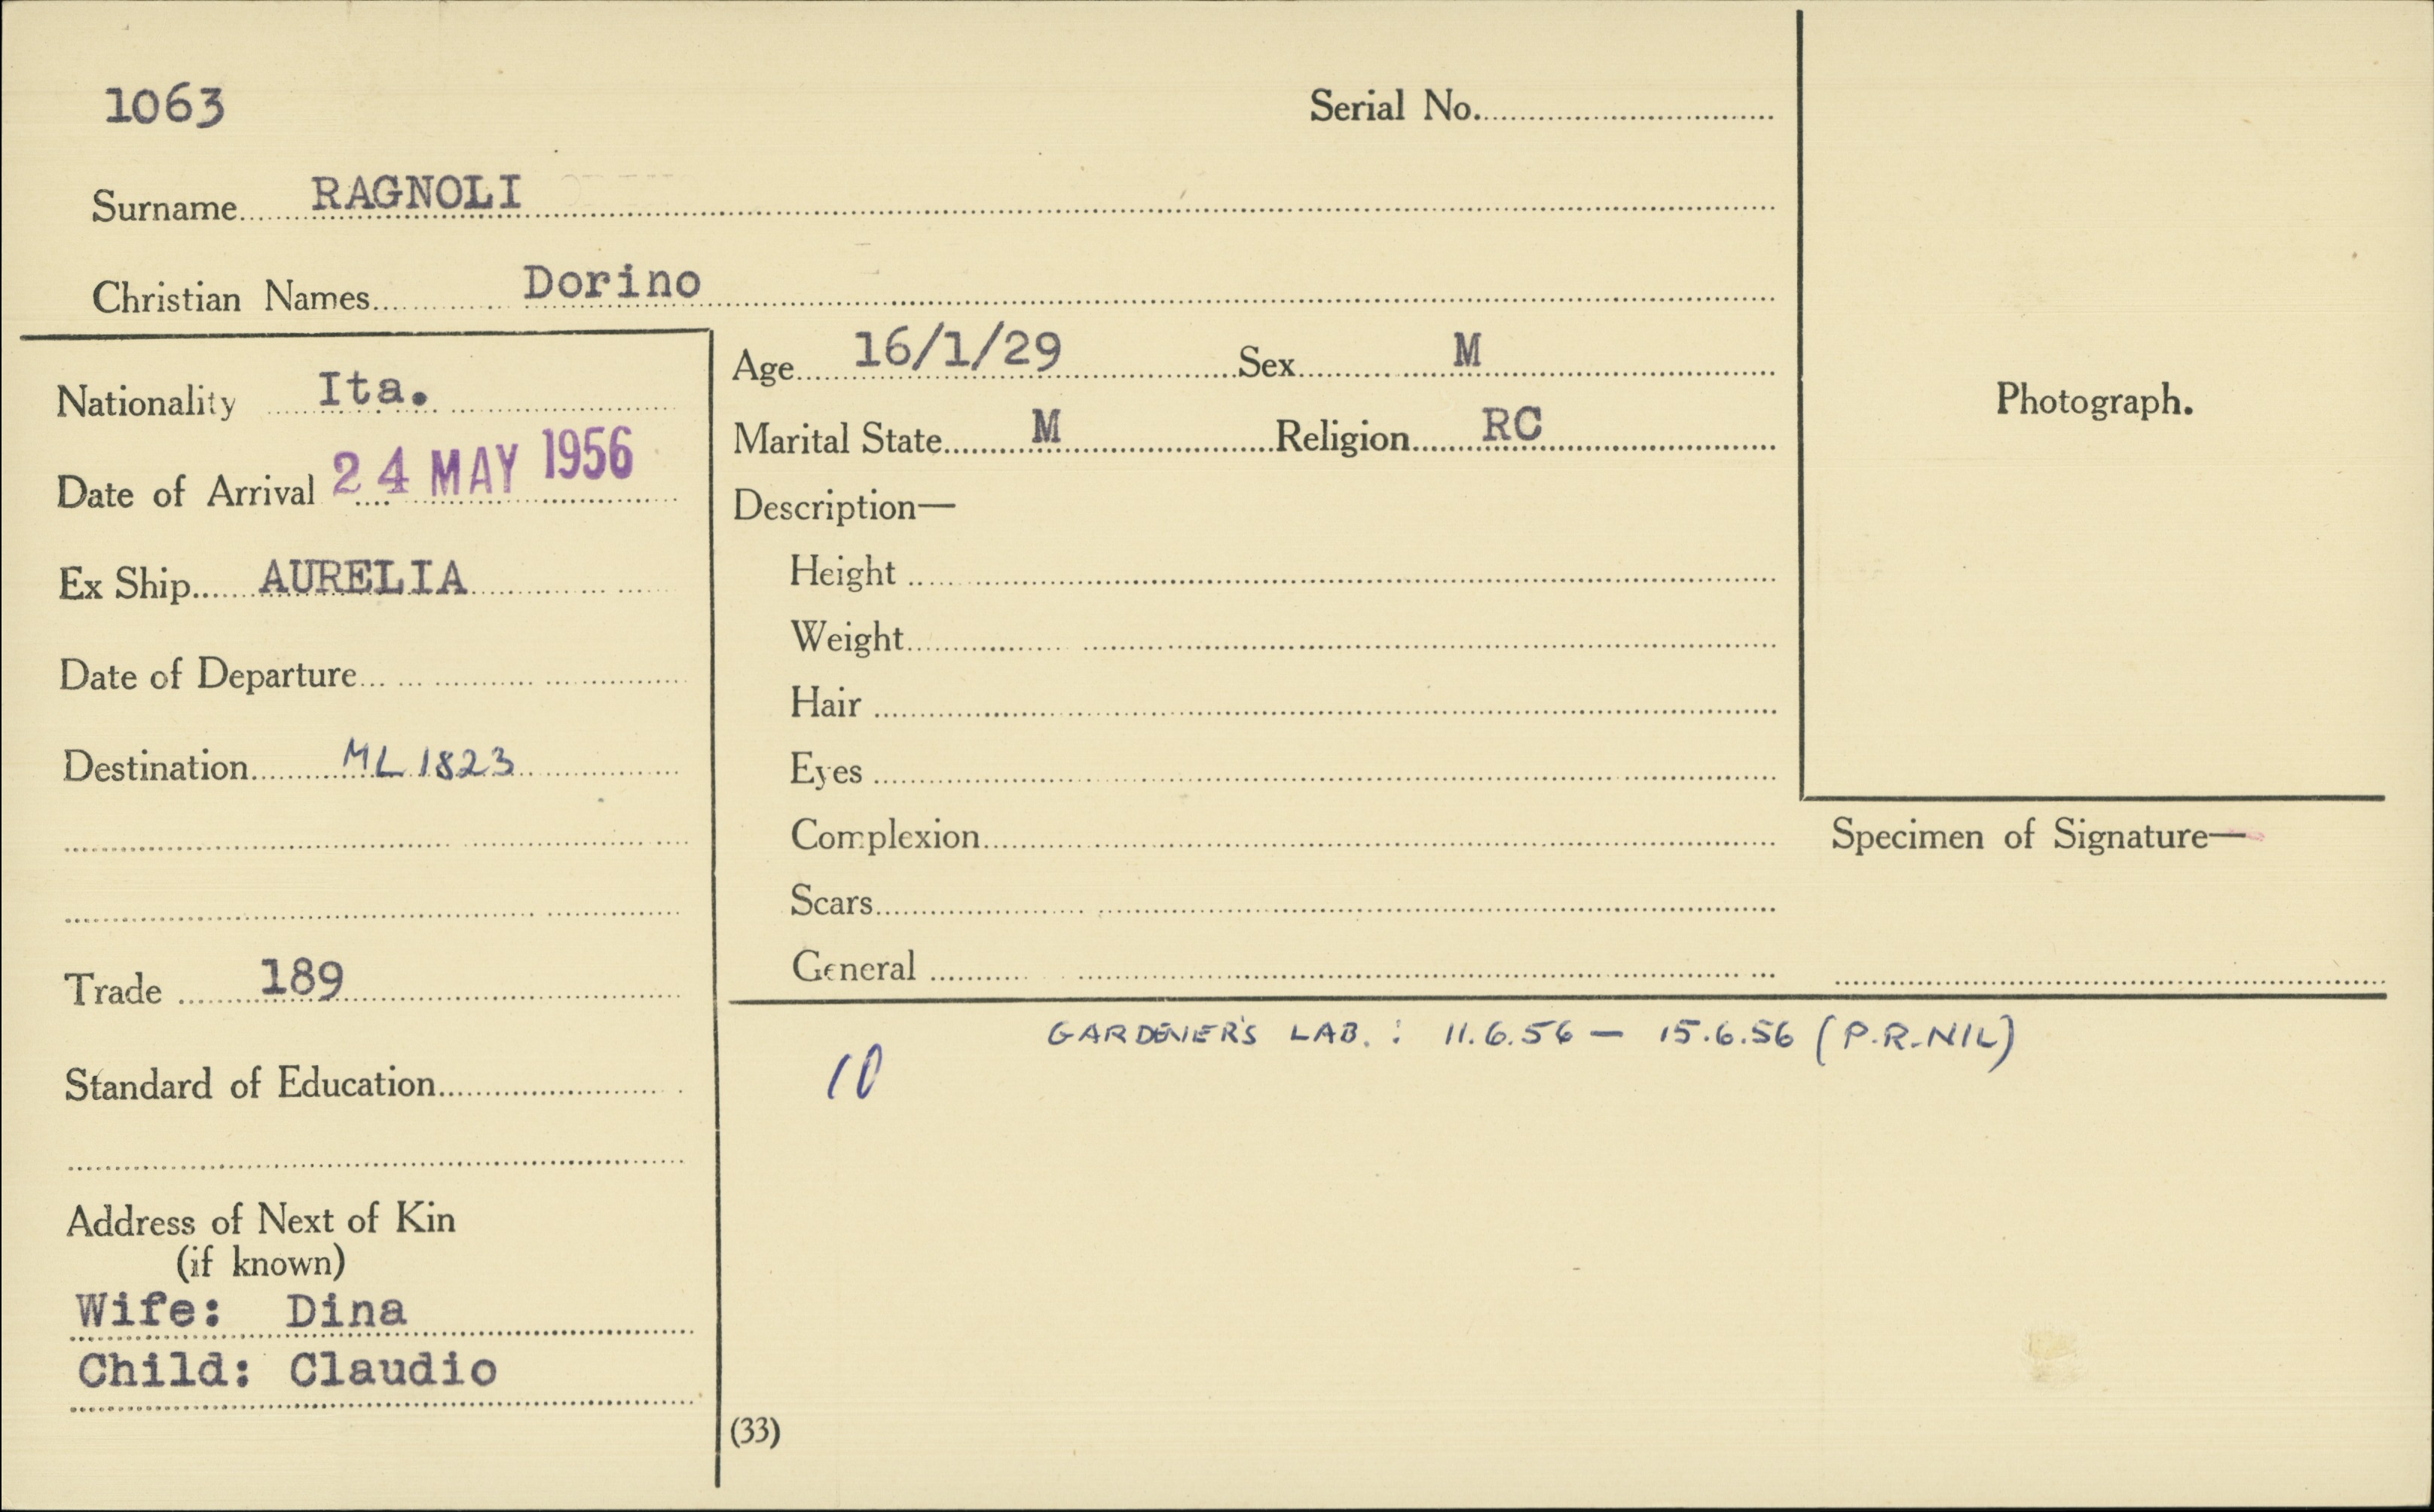 1063
Serial No.
Surname RAGNOLI
Christian Names Dorino
Nationality Ita.
Date of Arrival 24 MAY 1956
Ex Ship AURELIA
Date of Departure
Destination ML 1823
Trade 189
Standard of Education
Address of Next of Kin
(if known)
Wife: Dina
Child: Claudio
Age 16/1/29 Sex M
Marital State M Religion RC
Description—
Height
Weight
Hair
Eyes
Complexion
Scars
General
Photograph.
Specimen of Signature—
GARDENER'S LAB. : 11.6.56 — 15.6.56 (P.R. NIL)
10
(33)